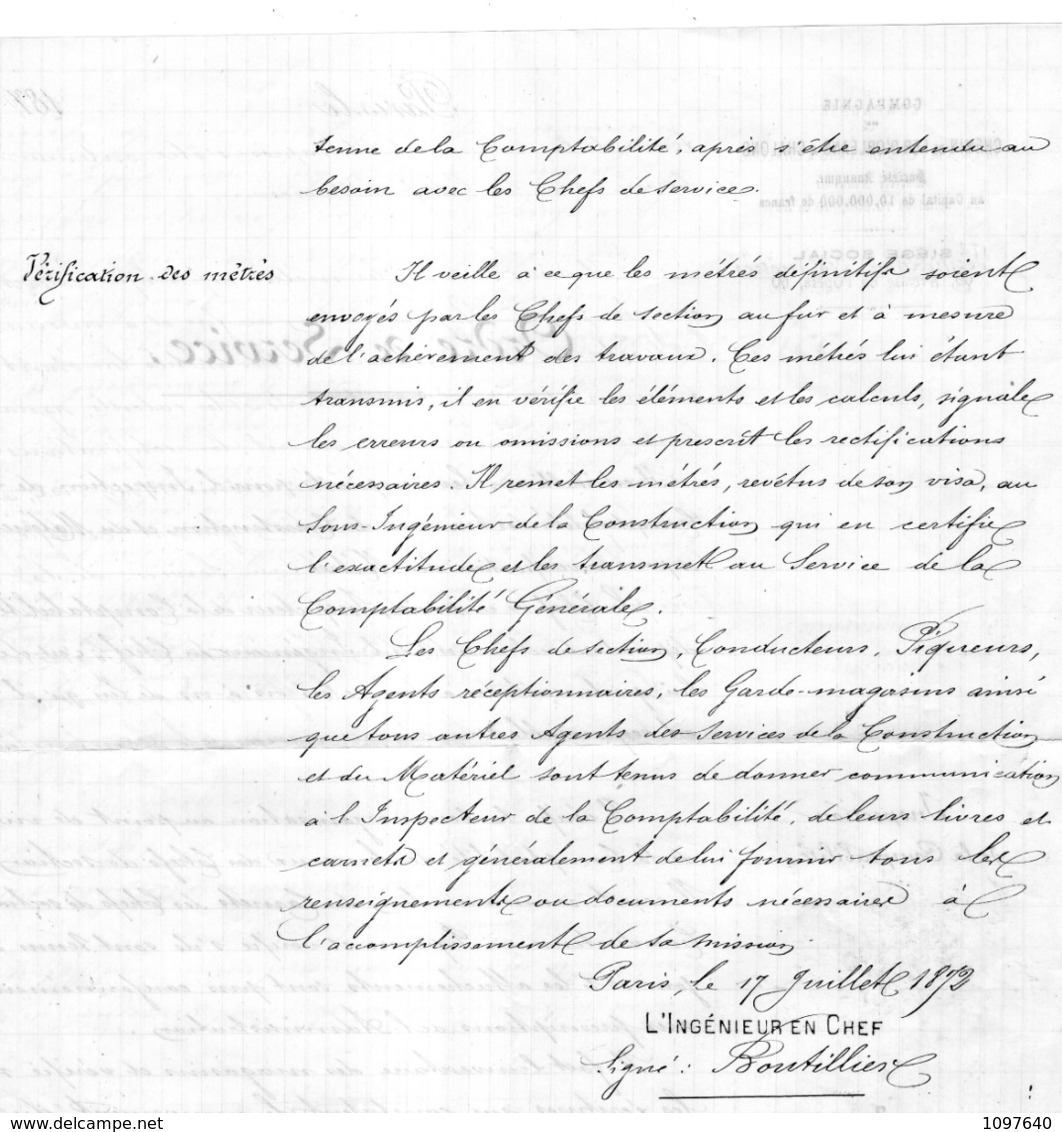 tenue de la Comptabilité, après s'être entendu au
besoin avec les Chefs de service.
Vérification des métrés
Il veille à ce que les métrés définitifs soient
envoyés par les Chefs de section au fur et à mesure
de l'achèvement des travaux. Ces métrés lui étant
transmis, il en vérifie les éléments et les calculs, signale
les erreurs ou omissions et prescrit les rectifications
nécessaires. Il remet les métrés, revêtus de son visa, au
Sous-Ingénieur de la Construction qui en certifie
l'exactitude et les transmet au Service de la
Comptabilité Générale.
Les Chefs de section, Conducteurs, Piqueurs,
les Agents réceptionnaires, les Garde-magasins ainsi
que tous autres Agents des services de la Construction
et du Matériel sont tenus de donner communication
à l'Inspecteur de la Comptabilité, de leurs livres et
carnets et généralement de lui fournir tous les
renseignements ou documents nécessaires à
l'accomplissement de sa mission.
Paris, le 17 Juillet 1872
L'INGÉNIEUR EN CHEF
Signé : Boutillier
delcampe.net
1097640